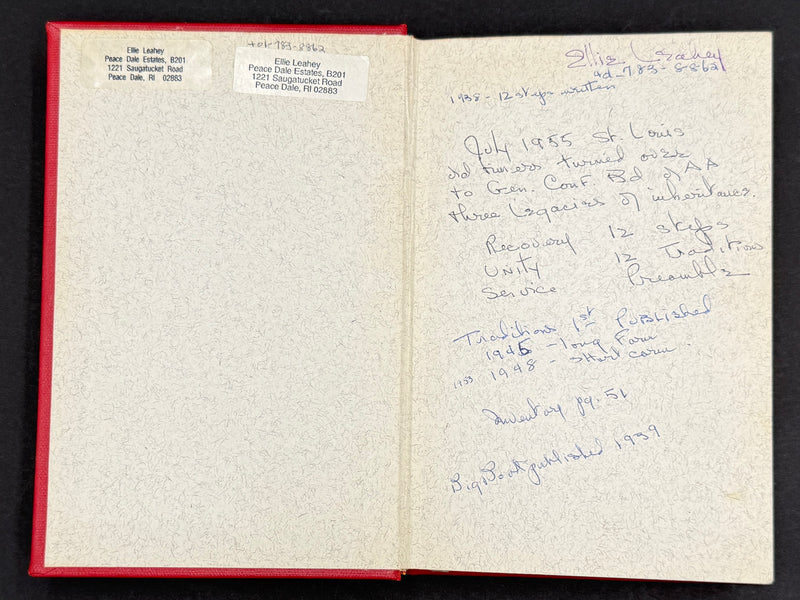 Ellie Leahey
Peace Dale Estates, B201
1221 Saugatucket Road
Peace Dale, RI 02883
401-783-8862
Ellie Leahey
Peace Dale Estates, B201
1221 Saugatucket Road
Peace Dale, RI 02883
Ellie Leahey
783-8862
1938 - 12 steps written
July 1955 St. Louis
old timers turned over
to Gen. Conf. Bd of AA
three Legacies of inheritance.
Recovery 12 steps
Unity 12 Traditions
Service Preamble
Traditions 1st Published
1945 - long Form
1948 - short
Inventory pg. 51
Big Book published 1939